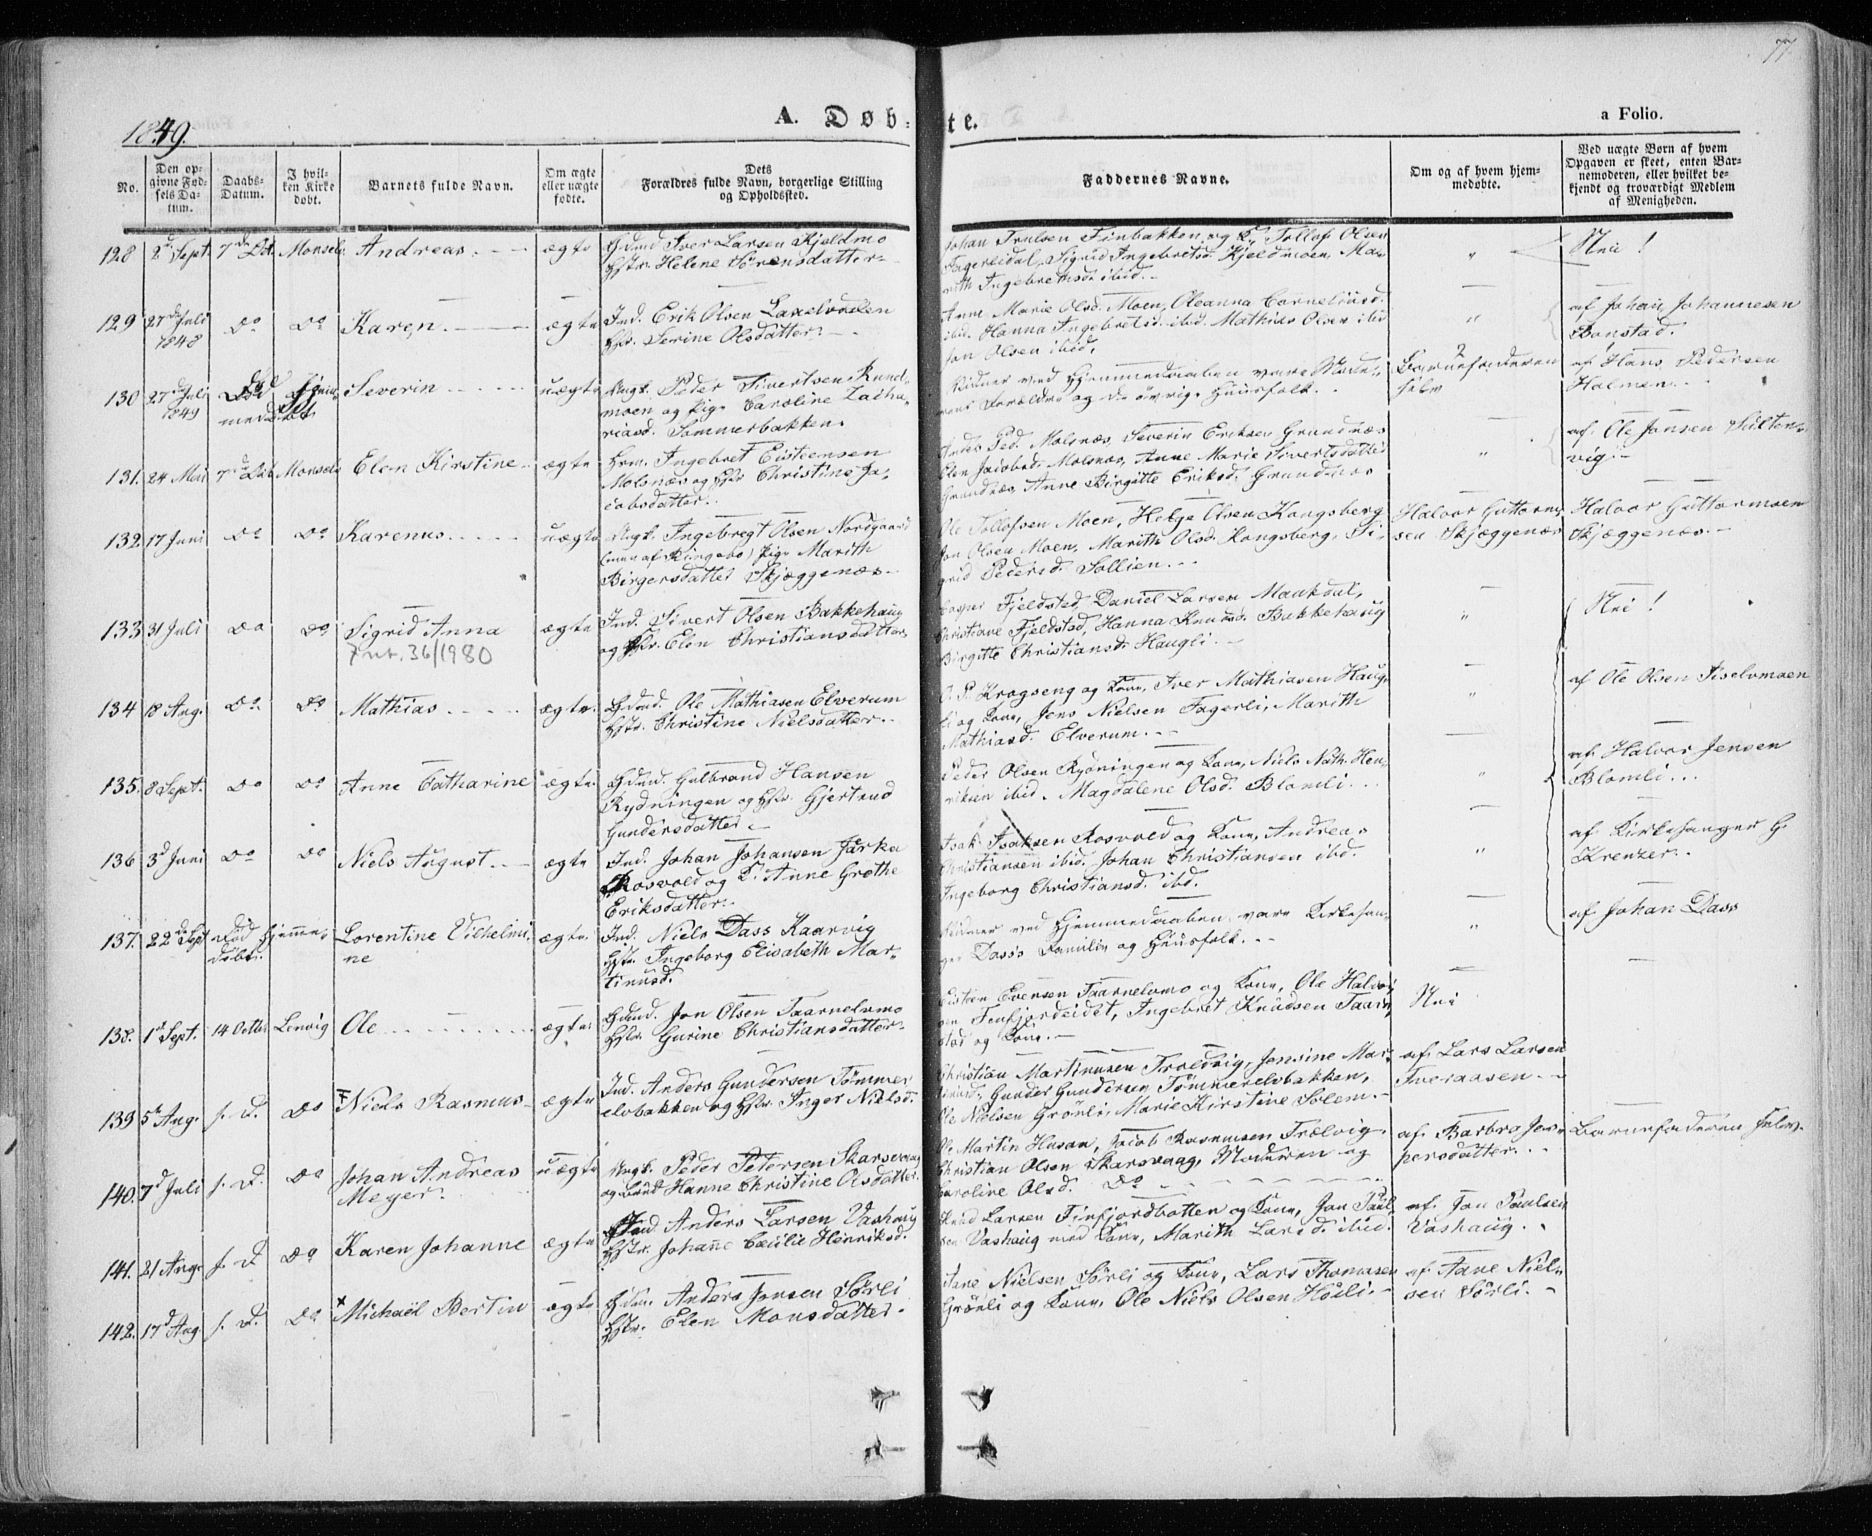 77
1849.
A. Døb-
te.
a Folio.
No.
Den op-
givne Fød-
sels Da-
tum.
Daabs-
Datum.
I hvil-
ken Kirke
døbt.
Barnets fulde Navn.
Om ægte
eller uægte
fødte.
Dets
Forældres fulde Navn, borgerlige Stilling
og Opholdssted.
Faddernes Navne.
Om og af hvem hjem-
medøbte.
Ved uægte Børn af hvem
Opgaven er skeet, enten Bar-
nemoderen, eller hvilket be-
kjendt og troværdigt Medlem
af Menigheden.
128 2d Sept. 7de Oct. Monselv Andreas. ægte
Iver Larsen Kjeldmo
Hstr. Helene Sörensdatter
Johan Trulsen Finbakken og Tollof Olsen
Fagerlidal, Sigrid Ingebretsd. Kjeldmoen, Ma-
rith Ingebretsd. ibid.
" Nei!
129 27de Juli 1848 Do Do Karen. ægte
Ind. Erik Olsen Laxelvdalen
Hstr. Serine Olsdatter
Ann Marie Olsd. Moen, Oleanna Corneliusd.
ibid. Hanna Ingebretsd. ibid. Mathias Olsen ibid
Jon Olsen ibid.
" af Johan Johannesen
Bonstad.
130 27de Juli 1849 Severin uægte
Ungk. Peder Sivertsen Rund-
moen og Pige Caroline Zacha-
riasd. Sommerbakken.
Vidner ved Hjemmedaaben vare Mode-
rens Forældre og de övrige Huusfolk.
Barnefaderen
selv
af Hans Pedersen
Holmen.
131. 24 Mai 7de Oct. Monselv Elen Kirstine ægte
Hrm. Ingebret Eisteensen
Molsnæs og Hstr. Christine Ja-
cobsdatter.
Anders Ped. Molsnæs, Severin Eriksen Grundnæs
Elen Jacobsd. Molsnæs, Anne Marie Sivertsdatter
Grundnæs, Anne Birgitte Eriksd. Grundnæs
" af Ole Jansen Sulten-
vig.
132. 17 Juni Do Do Karenus. uægte
Ungk. Ingebregt Olsen Nordgaard
af Ringebo) Pige Marith
Birgersdatter Skjæggenæs
Ole Tollofsen Moen, Helge Olsen Kongsberg
Jon Olsen Moen, Marith Olsd. Kongsberg, Si-
grid Pedersd. Sollien.
Halvor Guttorm-
sen Skjæggenæs
Halvor Guttormsen
Skjæggenæs
133 31 Juli Do Do Sigrid Anna
36/1980
ægte
Ind. Sivert Olsen Bakkehaug
og Hstr. Elen Christiansdatter
Casper Fjeldsted, Daniel Larsen Maukdal,
Christiane Fjeldsted, Hanna Knudsd. Bakkehaug
Birgitte Christiansd. Haugli.
" Nei!
134 18 Aug. Do Do Mathias. ægte.
Ole Mathiasen Elverum
Hstr. Christine Nielsdatter.
O. P. Krogseng og Kone, Iver Mathiasen Haug-
li og Kone, Jens Nielsen Fagerli, Marith
Mathiasd. Elverum.
" af Ole Olsen Iselvmoen
135. 8 Sept. Do Do Anne Catharine ægte
Gulbrand Hansen
Rydningen og Hstr. Gjertrud
Gundersdatter
Peder Olsen Rydningen og Kone, Niels Nath. Hen-
riksen ibid. Magdalene Olsd. Blomli.
" af Halvor Jensen
Blomli...
136 3d Juni Do Do Niels August. ægte
Ind. Johan Johansen Järka
Rosvold og K. Anne Grethe
Eriksdatter.
Isak Isaksen Rosvold og Kone, Andreas
Christiansen ibid. Johan Christiansen ibid.
Ingeborg Christiansd. ibid.
" af Kirkesanger G.
Krenzer.
137. 22de Sept. Död hjemme-
döbt.
Lorentine Vilhelmi-
ne
ægte
Ind. Niels Dass Kaarvig
Hstr. Ingeborg Elisabeth Mar-
tinusd.
Vidner ved Hjemmedaaben, vare Kirkesan-
ger Dass's Familie og Huusfolk.
" af Johan Dass
138. 1st Sept. 14 Octbr Lenvig Ole ægte
Jon Olsen Taarnelvmo
Hstr. Gurine Christiansdatter
Eisteen Evensen Taarnelvmo og Kone, Ole Halvor-
sen Finfjordeidet, Ingebret Knudsen Taarn-
og Kone.
Nei
139 5te Aug. s. D. Do Niels Rasmus ægte
Ind. Anders Gundersen Tömmer-
elvbakken og Hstr. Inger Nielsd.
Christian Martinusen Troldvig, Jensine Mar-
tinusd., Gunder Gundersen Tömmerelvbakken,
Ole Nielsen Grönli, Marie Kirstine Solem.
af Lars Larsen
Tveraasen
140. 7d Juli s. D. Do Johan Andreas
Meyer.
uægte
Ungk. Peder Petersen Skarsvaag
og Hanne Christine Olsdatter.
Ole Martin Husan, Jacob Rasmussen Trælvig.
Christian Olsen Skarsvaag, Moderen og
Caroline Olsd. Do
af Barbro Jes-
persdatter...
Barnefaderen selv.
141. 21 Aug. s. D. Do Karen Johanne ægte
Ind Anders Larsen Vashaug
Hstr. Johanne Cæcilie Henriksd.
Knud Larsen Finfjordbotten og Kone, Jon Paul-
sen Vashaug med Kone, Marith Larsd. ibid.
af Jon Paulsen
Vashaug.
142. 17d Aug s. D. Do Michaël Bertin ægte
Anders Jensen Sörli
Hstr. Elen Monsdatter
Tane Nielsen Sörli og Kone, Lars Thomasen
Grönli og Kone, Ole Niels Olsen Höili.
af Tane Niel-
sen Sörli.